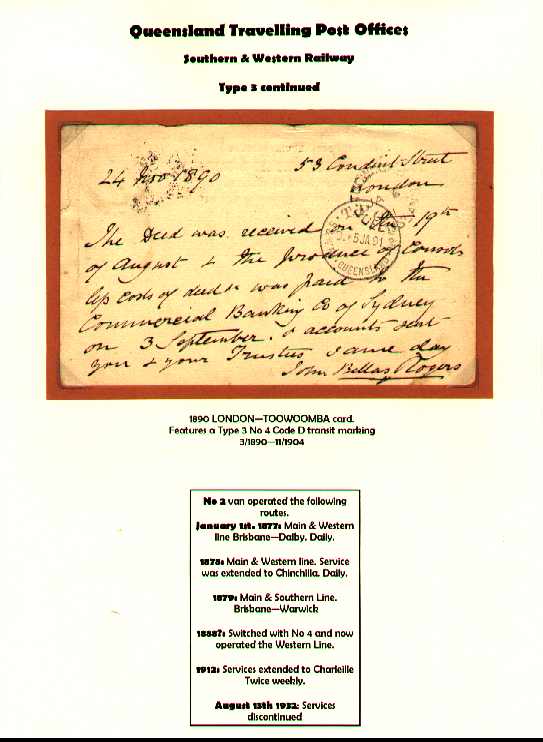 Queensland Travelling Post Offices
Southern & Western Railway
Type 3 continued
24 Nov 1890
53 Conduit Street
London
The Deed was received on the 19th
of August & the produce of Consols
less costs of deed &c was paid to the
Commercial Banking Co of Sydney
on 3 September. & accounts sent
you & your Trustees same day
John Bellas Rogers
T.P.O.
5 JA 91
QUEENSLAND
1890 LONDON—TOOWOOMBA card.
Features a Type 3 No 4 Code D transit marking
3/1890—11/1904
No 2 van operated the following
routes.
January 1st. 1877: Main & Western
line Brisbane—Dalby. Daily.
1878: Main & Western line. Service
was extended to Chinchilla. Daily.
1879: Main & Southern Line.
Brisbane—Warwick
1888?: Switched with No 4 and now
operated the Western Line.
1912: Services extended to Charleille
Twice weekly.
August 13th 1932: Services
discontinued